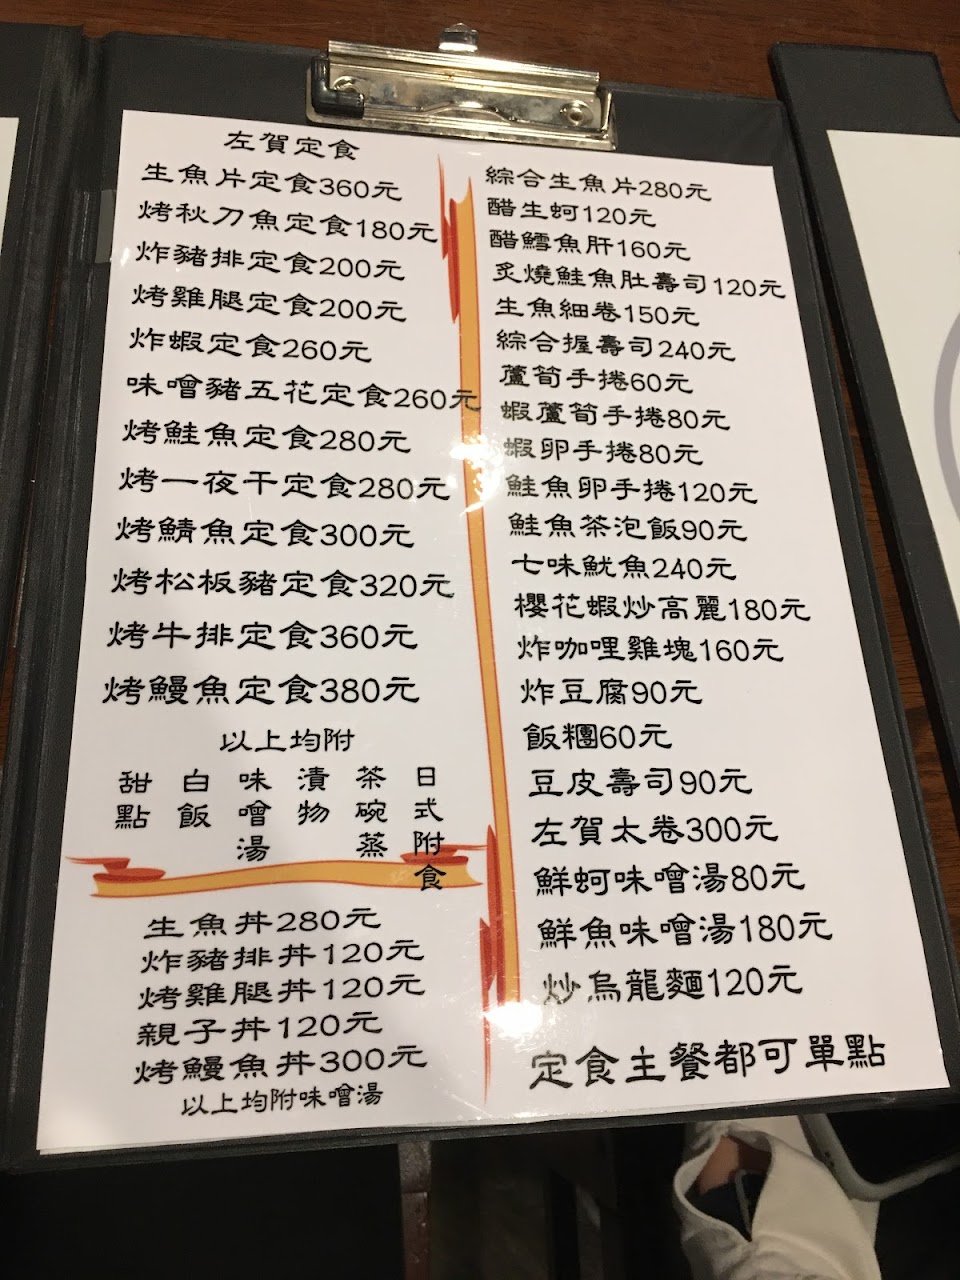 左賀定食
生魚片定食360元
烤秋刀魚定食180元
炸豬排定食200元
烤雞腿定食200元
炸蝦定食260元
味噌豬五花定食260元
烤鮭魚定食280元
烤一夜干定食280元
烤鯖魚定食300元
烤松板豬定食320元
烤牛排定食360元
烤鰻魚定食380元
以上均附
日式附食
茶碗蒸
漬物
味噌湯
白飯
甜點
生魚丼280元
炸豬排丼120元
烤雞腿丼120元
親子丼120元
烤鰻魚丼300元
以上均附味噌湯
綜合生魚片280元
醋生蚵120元
醋鱈魚肝160元
炙燒鮭魚肚壽司120元
生魚細卷150元
綜合握壽司240元
蘆筍手捲60元
蝦蘆筍手捲80元
蝦卵手捲80元
鮭魚卵手捲120元
鮭魚茶泡飯90元
七味魷魚240元
櫻花蝦炒高麗180元
炸咖哩雞塊160元
炸豆腐90元
飯糰60元
豆皮壽司90元
左賀太卷300元
鮮蚵味噌湯80元
鮮魚味噌湯180元
炒烏龍麵120元
定食主餐都可單點